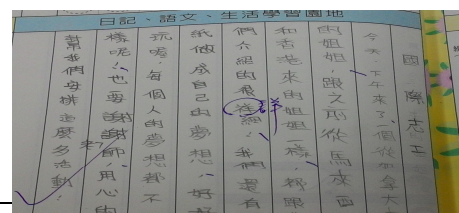 日記、語文、生活學習園地
國際志工
今天下午來了個從加拿大
的姐姐,跟之前從馬來西
和香港來的姐姐一樣,我跟
們六組的很詳細,我們還有
紙做成自己的夢想,好好
玩喔!每個人的夢想都不
樣呢!也要謝謝老師用心的
幫我們安排這麼多活動!